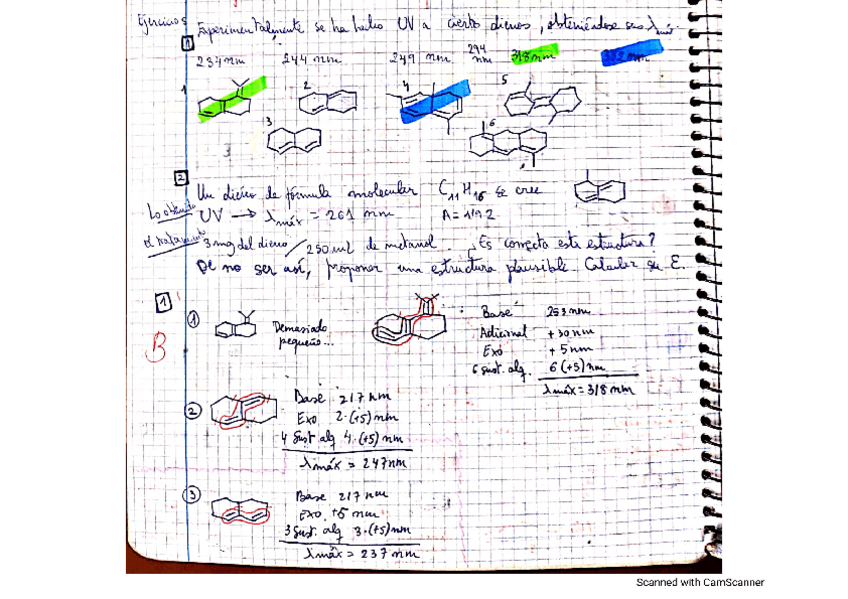 Ejercicios Experimentalmente se ha hecho UV a ciertos dienos, obteniéndose sus λmáx.
1
234nm 244 nm 249 nm 294 nm 318nm 353 nm
1 2 4 5
3 6
3
2
Un dieno de fórmula molecular C11H16 se cree
Lo obtenido UV → λmáx = 261 nm A=1'192
el tratamiento 3mg del dieno / 250 mL de metanol. ¿Es correcta esta estructura?
De no ser así, proponer una estructura plausible. Calcular su ε.
1
B
1 Demasiado pequeño...
Base 253 nm
Adicional +30nm
Exo +5nm
6 Sust. alq. 6(+5)nm
λmáx = 318 nm
2 Base 217 nm
Exo 2·(+5)nm
4 Sust alq 4·(+5)nm
λmáx = 247nm
3 Base 217 nm
Exo +5 nm
3 Sust. alq 3·(+5)nm
λmáx = 237 nm
Scanned with CamScanner